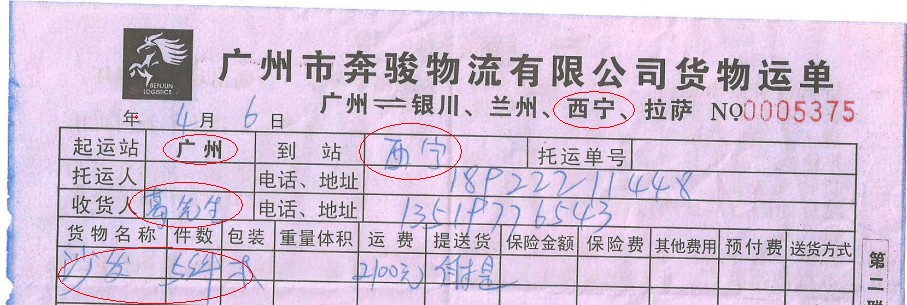 广州市奔骏物流有限公司货物运单
BENJUN
LOGISTICS
广州⇌银川、兰州、西宁、拉萨 NO.0005375
年 4月 6日
起运站 广州 到站 西宁 托运单号
托运人 电话、地址 18922211448
收货人 葛先生 电话、地址 13519776543
货物名称 件数 包装 重量体积 运费 提送货 保险金额 保险费 其他费用 预付费 送货方式
沙发 5件 2100元 自提
第二联